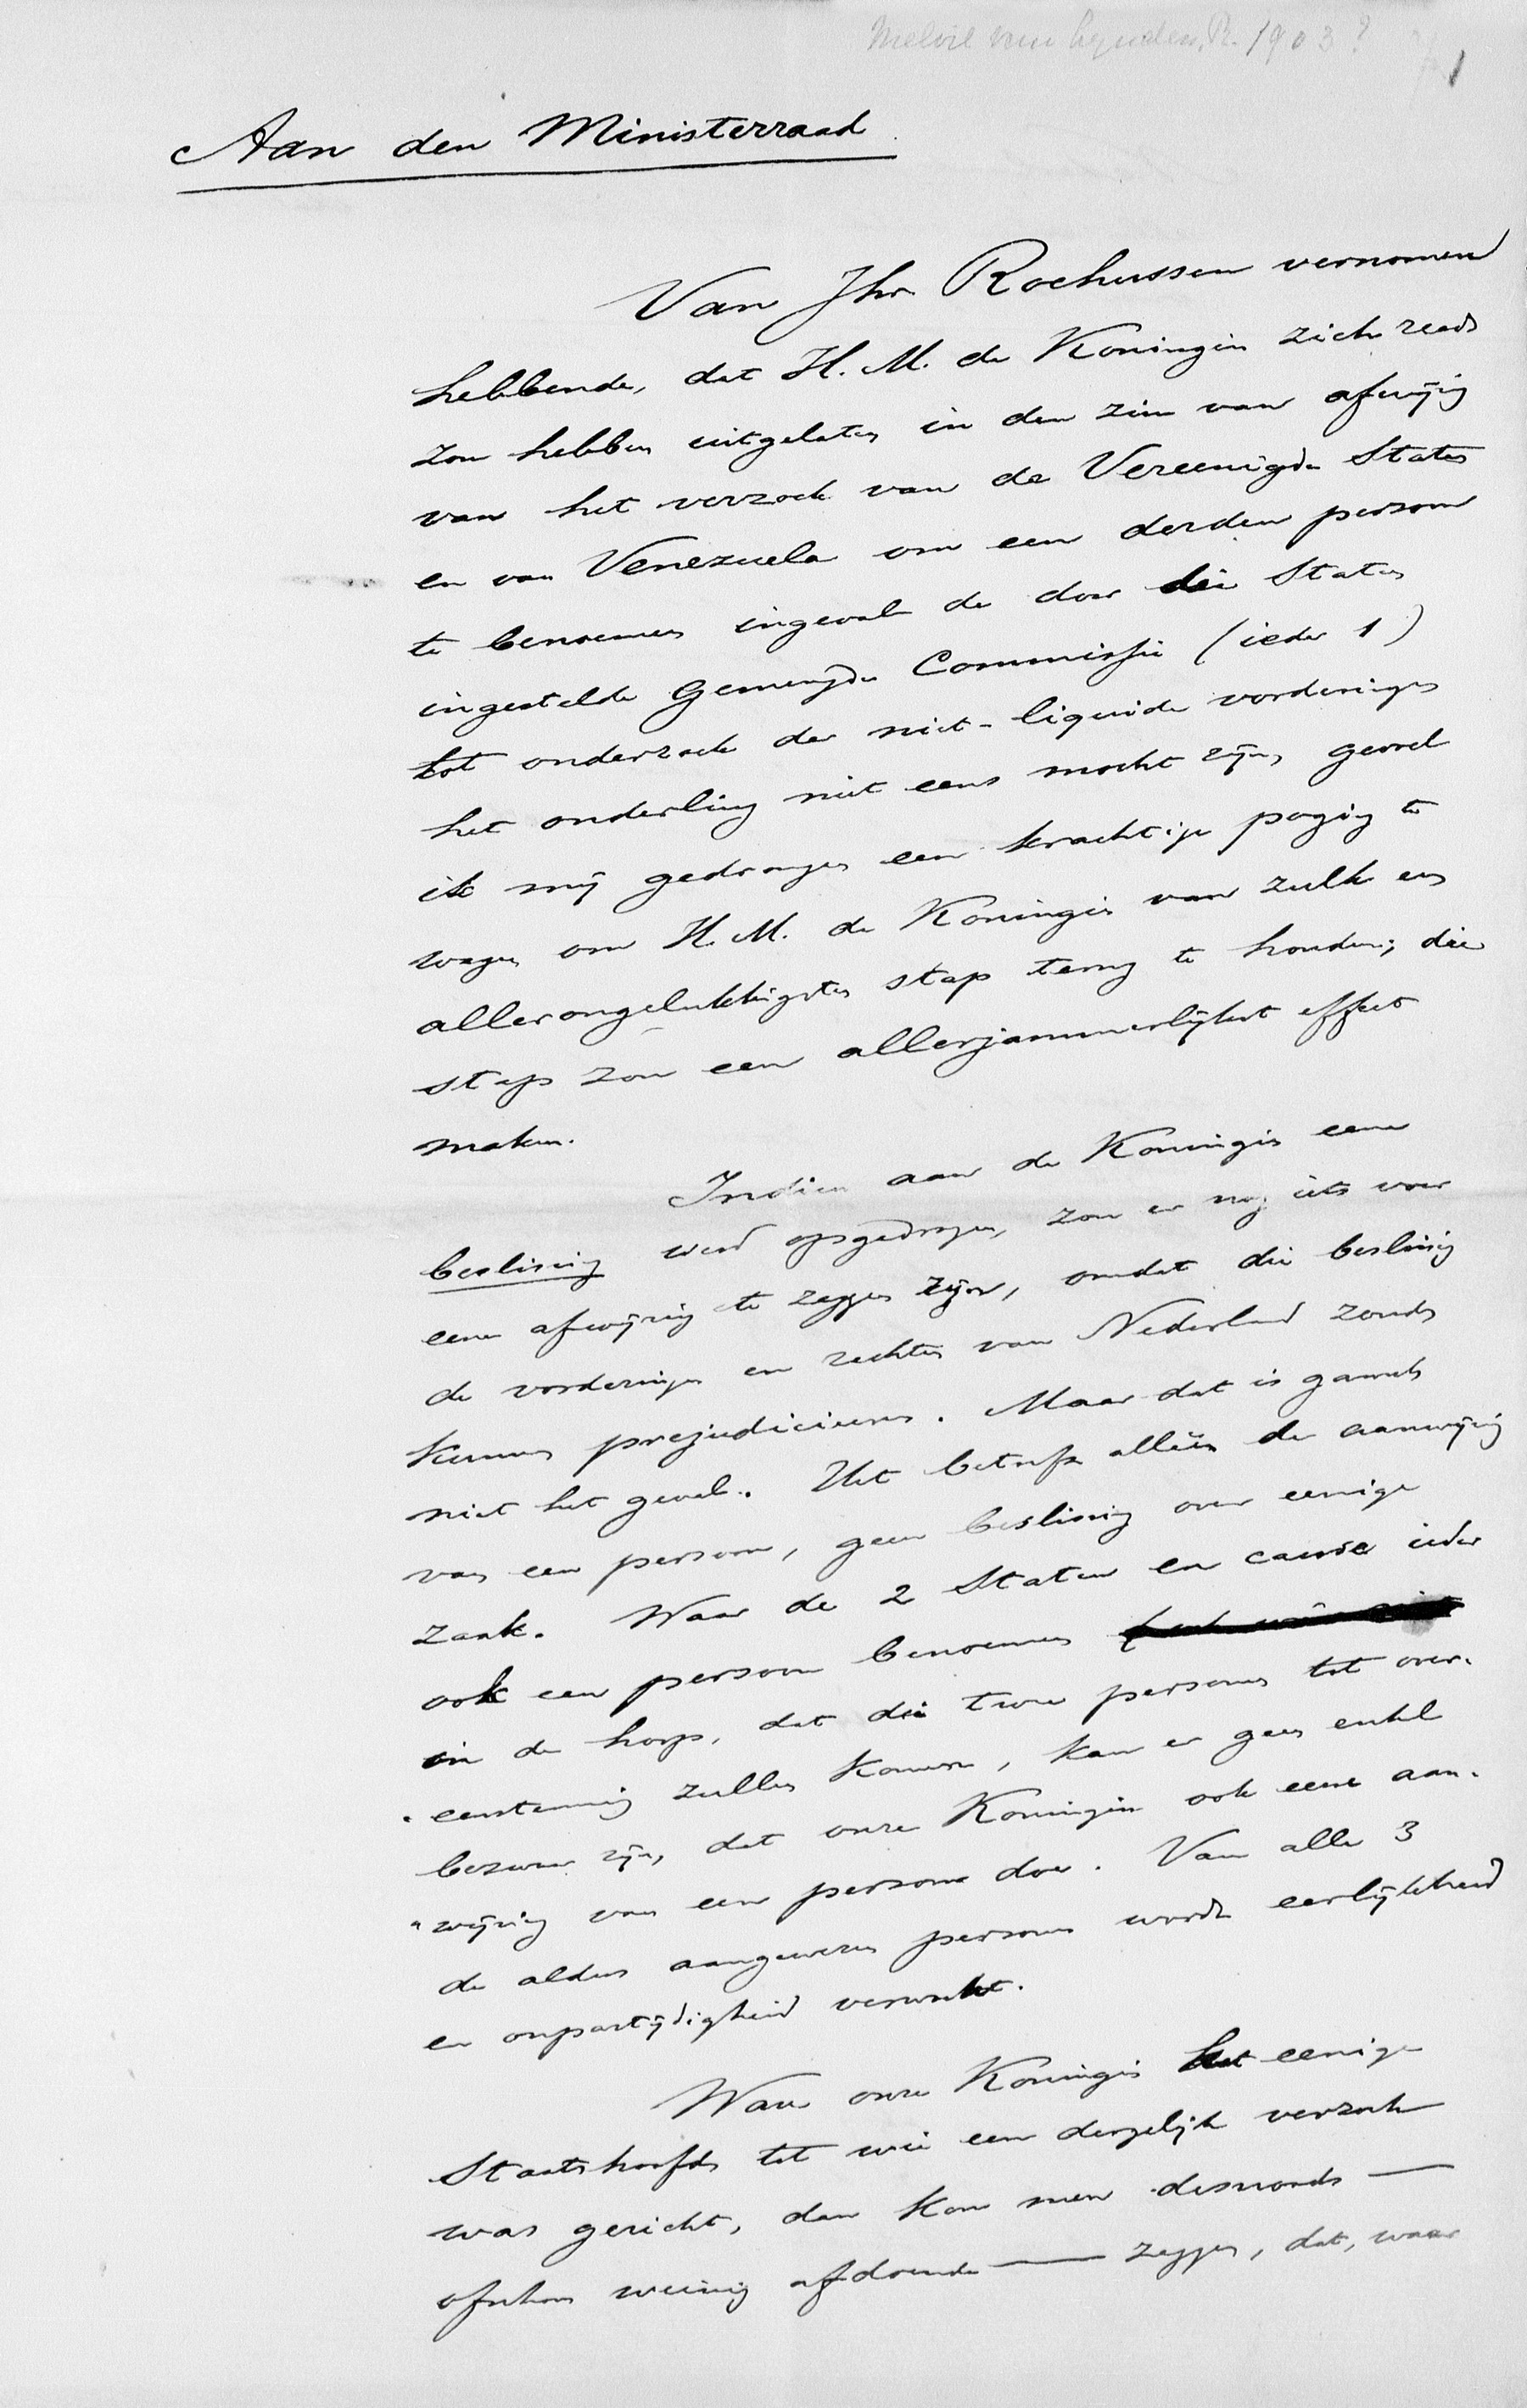 Melvil van Lynden, R. 1903?
1
Aan den Ministerraad
Van Jhr Rochussen vernomen
hebbende, dat H. M. de Koningin zich reeds
zou hebben uitgelaten in den zin van afwijzing
van het verzoek van de Vereenigde Staten
en van Venezuela om een derden persoon
te benoemen ingeval de door die Staten
ingestelde Gemengde Commissie (ieder 1)
tot onderzoek der niet-liquide vorderingen
het onderling niet eens mocht zijn, gevoel
ik mij gedrongen een krachtige poging te
wagen om H. M. de Koningin van zulk een
allerongelukkigsten stap terug te houden; die
stap zou een allerjammerlijkst effect
maken.
Indien aan de Koningin eene
beslissing werd opgedragen, zou er nog iets voor
eene afwijzing te zeggen zijn, omdat die beslissing
de vorderingen en rechten van Nederland zoude
kunnen prejudicieeren. Maar dat is gansch
niet het geval. Het betreft alléén de aanwijzing
van een persoon, geen beslissing over eenige
zaak. Waar de 2 Staten en cause ieder
ook een persoon benoemen
in de hoop, dat die twee personen tot over-
"eenstemming zullen komen, kan er geen enkel
bezwaar zijn, dat onze Koningin ook eene aan-
"wijzing van een persoon doe. Van alle 3
de aldus aangewezen personen wordt eerlijkheid
en onpartijdigheid verwacht.
Ware onze Koningin het eenige
Staatshoofd tot wie een dergelijk verzoek
was gericht, dan kon men desnoods —
ofschoon weinig afdoende — zeggen, dat, waar